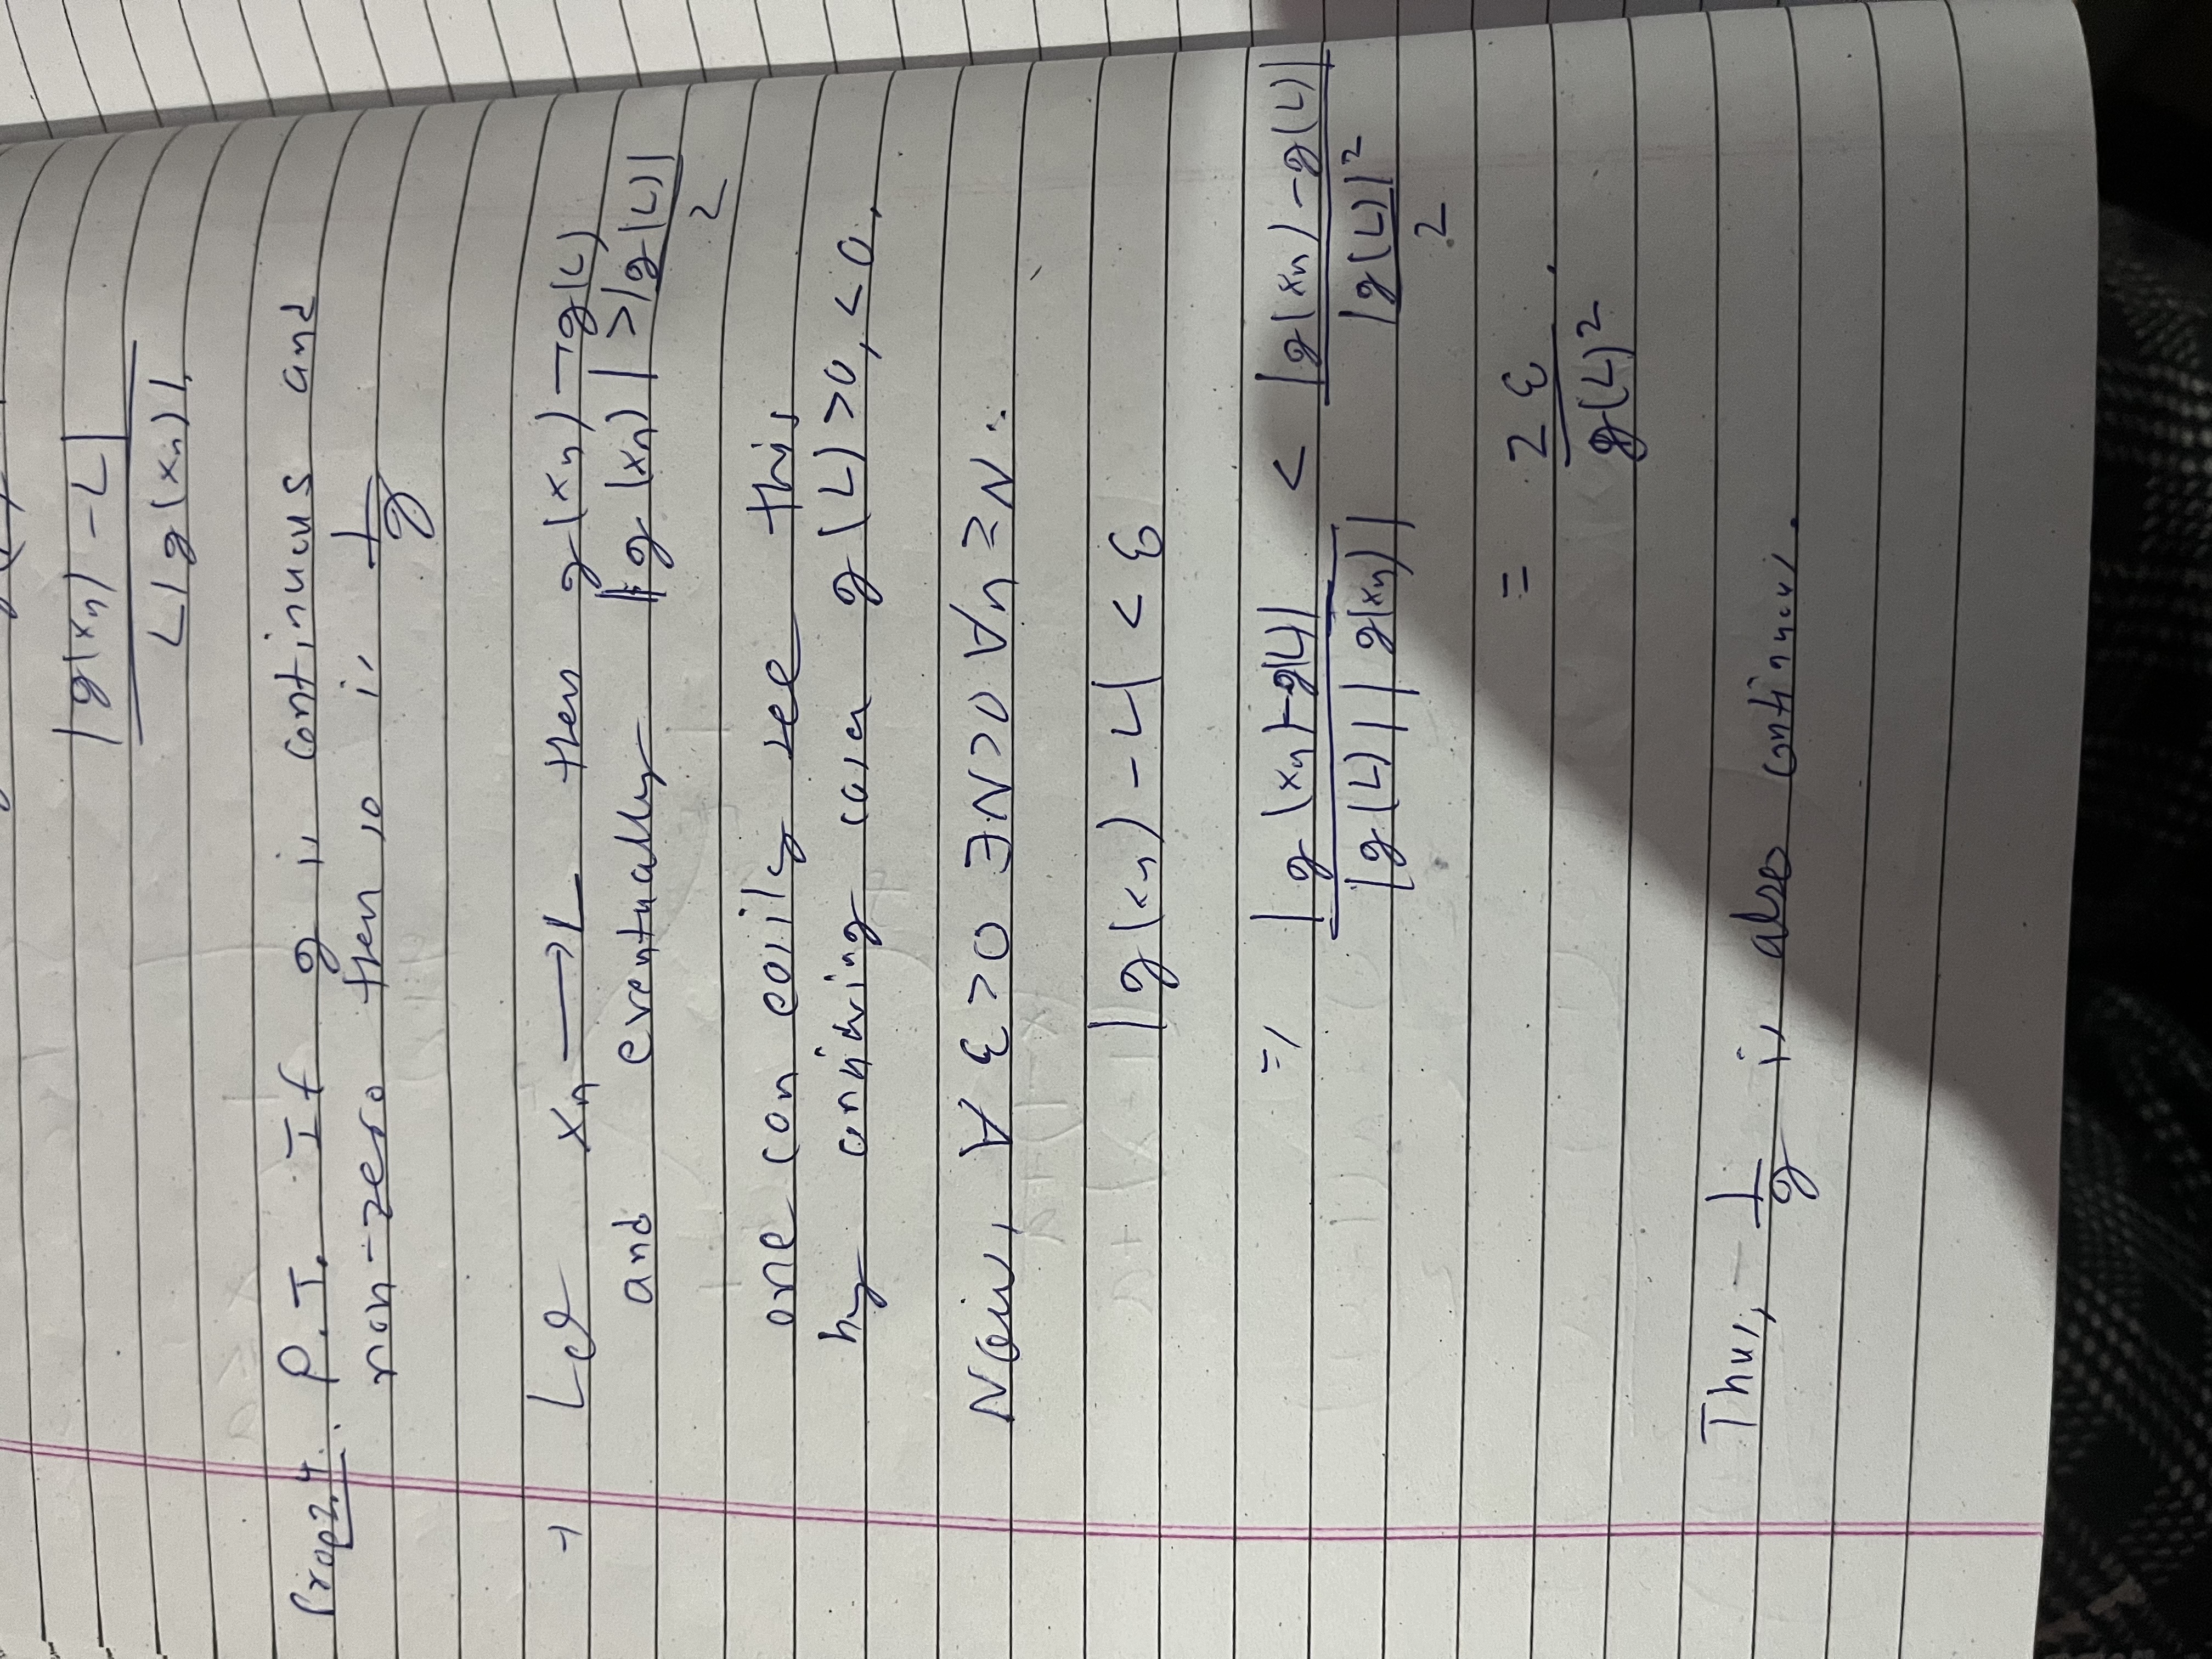 |g(xₙ) - L|
L|g(xₙ)|.
Prop 2.4. P.T. If g is continuous and
non-zero then so is 1/g
→ Let xₙ → L then g(xₙ) → g(L)
and eventually |g(xₙ)| > |g(L)|/2
one can easily see this
by considring cases g(L) > 0, < 0.
Now, ∀ ε > 0 ∃N > 0 ∀n ≥ N :
|g(xₙ) - L| < ε
=> |g(xₙ) - g(L)| / |g(L)| |g(xₙ)| < |g(xₙ) - g(L)| / |g(L)|²/2
= 2ε / g(L)² .
Thus, 1/g is also continuous.